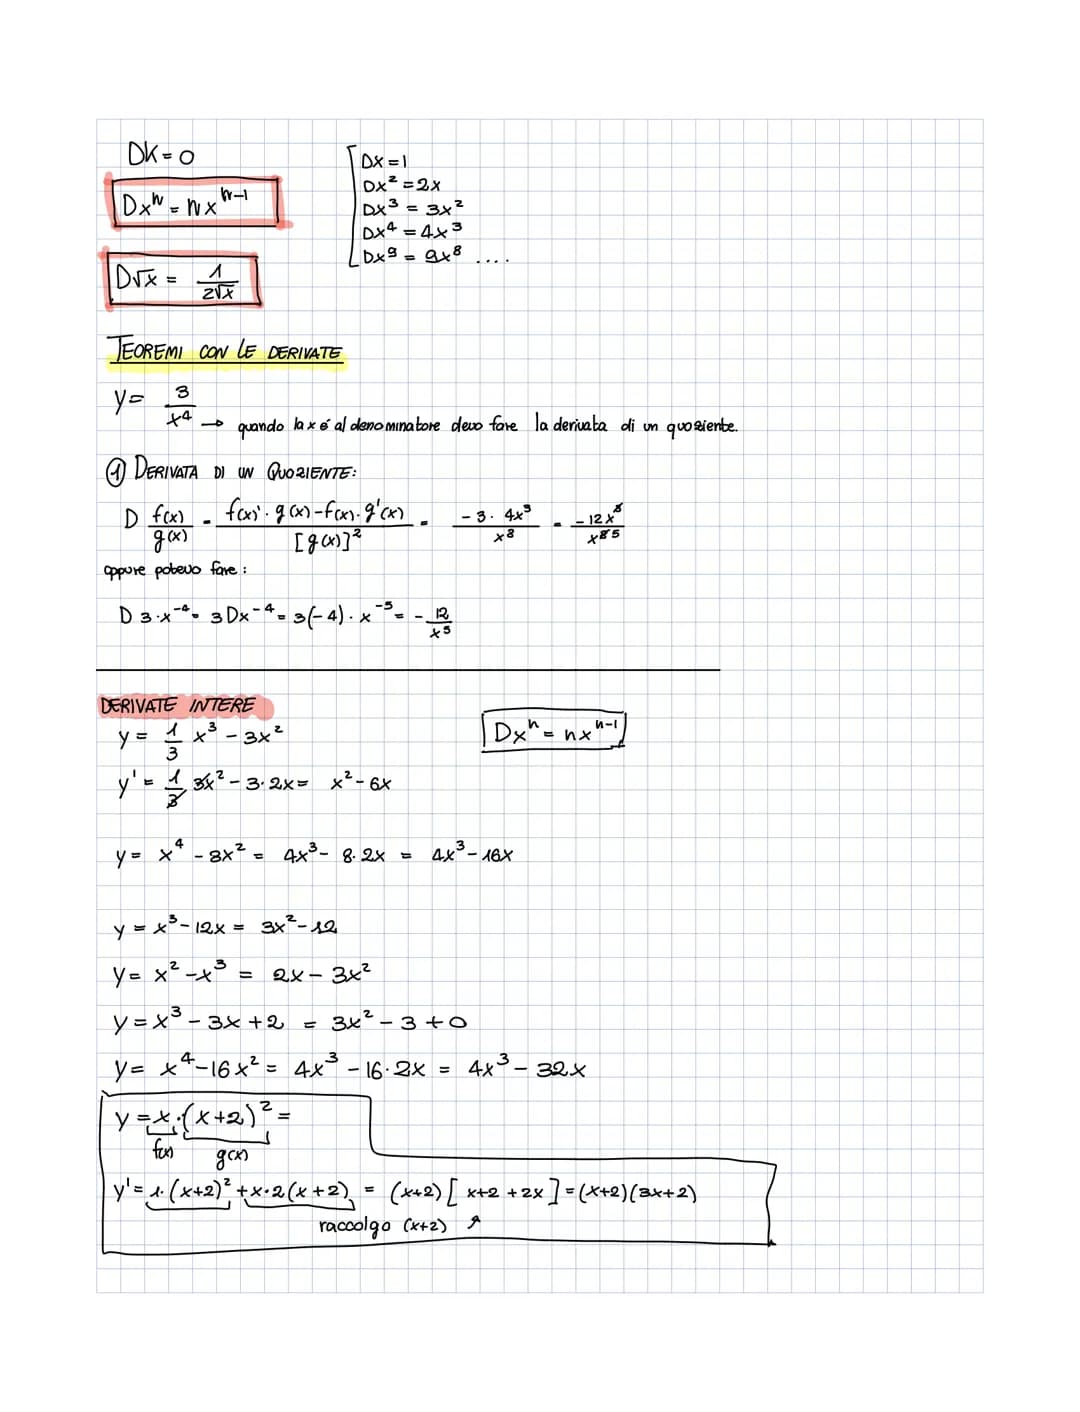 DK = 0
Dxⁿ = nxⁿ⁻¹
D√x = 1/2√x
Dx = 1
Dx² = 2x
Dx³ = 3x²
Dx⁴ = 4x³
Dx⁹ = 9x⁸ ....
TEOREMI CON LE DERIVATE
y = 3/x⁴ → quando la x é al denominatore devo fare la derivata di un quoziente.
① DERIVATA DI UN QUOZIENTE:
D f(x)/g(x) = f(x)' · g(x) - f(x) · g'(x)/[g(x)]² = -3 · 4x³/x⁸ = -12x³/x⁸ ⁵
oppure potevo fare :
D 3·x⁻⁴ = 3Dx⁻⁴ = 3(-4) · x⁻⁵ = -12/x⁵
DERIVATE INTERE
y = 1/3 x³ - 3x²
Dxⁿ = nxⁿ⁻¹
y' = 1/3 3x² - 3·2x = x² - 6x
y = x⁴ - 8x² = 4x³ - 8·2x = 4x³ - 16x
y = x³ - 12x = 3x² - 12
y = x² - x³ = 2x - 3x²
y = x³ - 3x + 2 = 3x² - 3 + 0
y = x⁴ - 16x² = 4x³ - 16·2x = 4x³ - 32x
y = x·(x+2)² =
f(x) g(x)
y' = 1·(x+2)² + x·2(x+2) = (x+2)[x+2+2x] = (x+2)(3x+2)
raccolgo (x+2) ↗